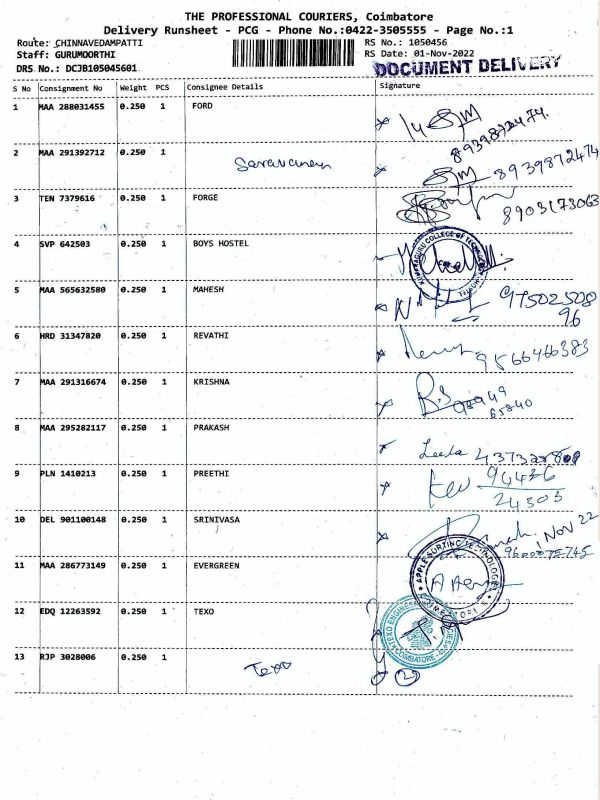 THE PROFESSIONAL COURIERS, Coimbatore
Delivery Runsheet - PCG - Phone No.:0422-3505555 - Page No.:1
Route: CHINNAVEDAMPATTI
Staff: GURUMOORTHI
DRS No.: DCJB105045601
RS No.: 1050456
RS Date: 01-Nov-2022
DOCUMENT DELIVERY
S No Consignment No Weight PCS Consignee Details Signature
1 MAA 288031455 0.250 1 FORD
8939872474.
2 MAA 291392712 0.250 1 Saravanan 8939872474
3 TEN 7379616 0.250 1 FORGE 8903173063
4 SVP 642503 0.250 1 BOYS HOSTEL
KUMARAGURU COLLEGE OF TECHNOLOGY
5 MAA 565632580 0.250 1 MAHESH 97502508
96
6 HRD 31347820 0.250 1 REVATHI 9566466383
7 MAA 291316674 0.250 1 KRISHNA
65840
8 MAA 295282117 0.250 1 PRAKASH Leela
9 PLN 1410213 0.250 1 PREETHI 96436
24303
10 DEL 901100148 0.250 1 SRINIVASA 1 NOV 22
11 MAA 286773149 0.250 1 EVERGREEN
APPLE SORTING TECHNOLOGIES
12 EDQ 12263592 0.250 1 TEXO
TEXO ENGINEERING
COIMBATORE
13 RJP 3028006 0.250 1 Texo